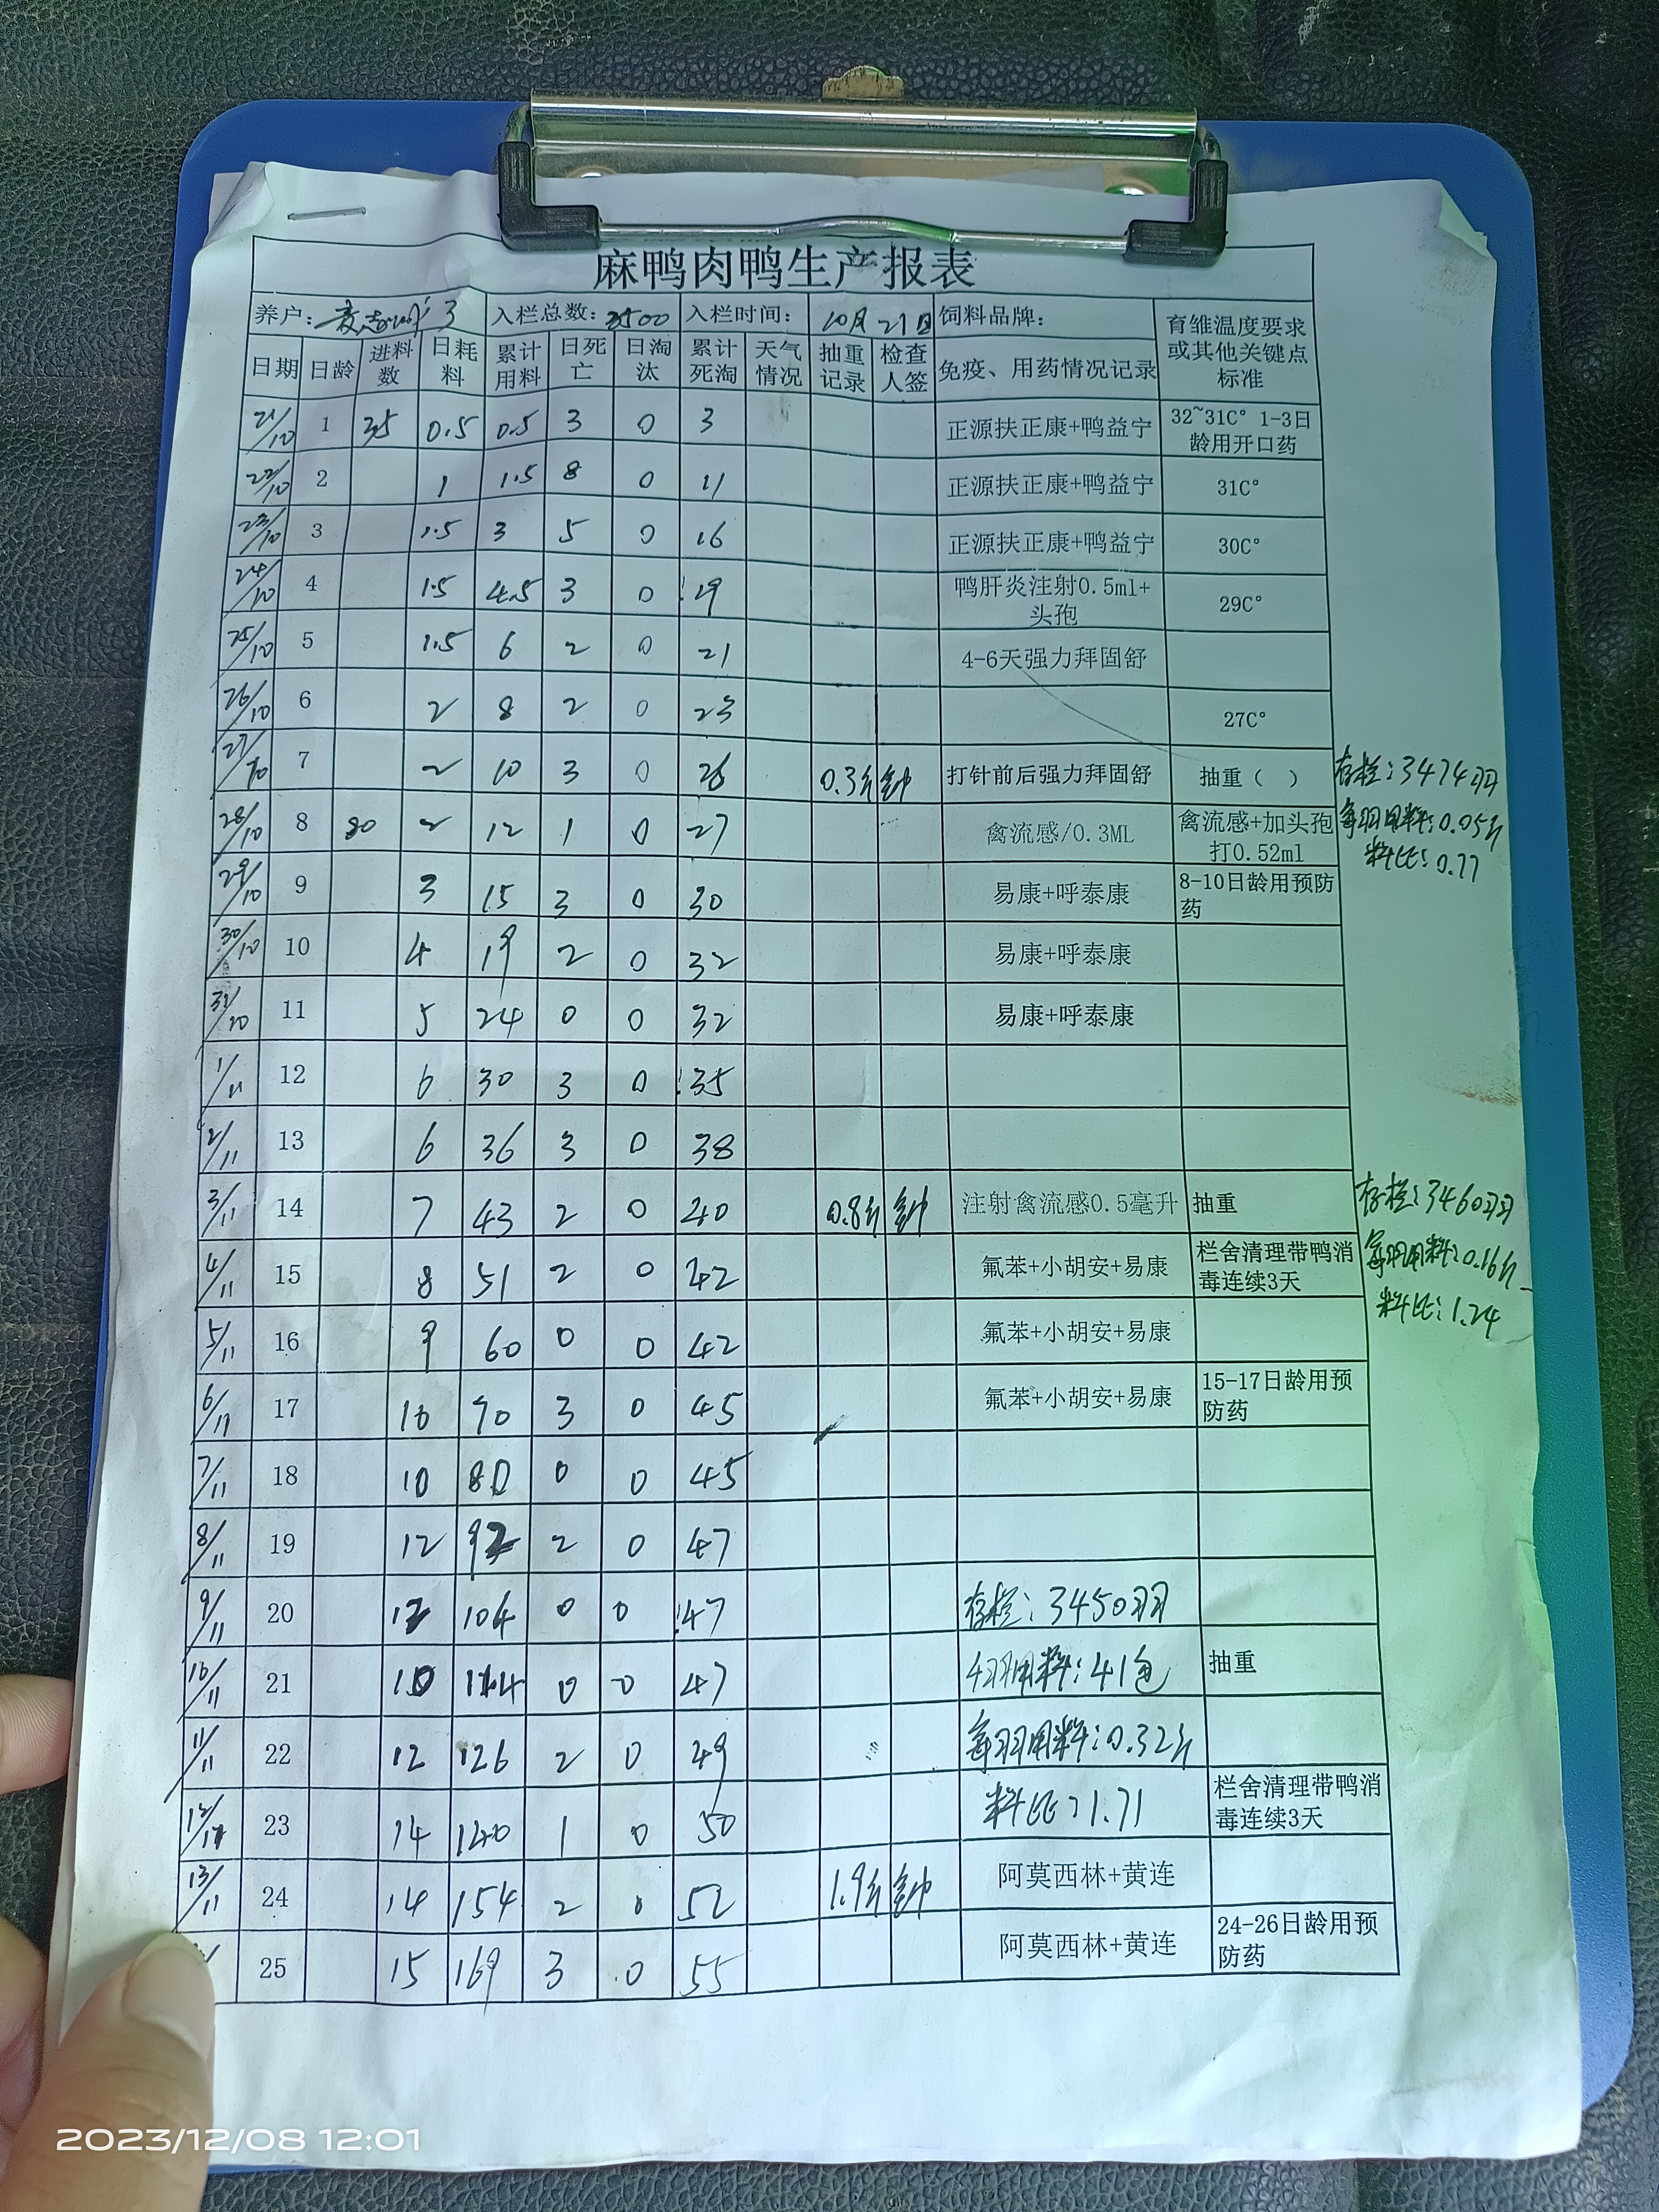 麻鸭肉鸭生产报表
养户： 入栏总数：3500 入栏时间： 10月21日 饲料品牌： 育雏温度要求或其他关键点标准
日期 日龄 进料数 日耗料 累计用料 日死亡 日淘汰 累计死淘 天气情况 抽重记录 检查人签 免疫、用药情况记录
21/10 1 35 0.5 0.5 3 0 3 正源扶正康+鸭益宁 32~31C° 1-3日龄用开口药
22/10 2 1 1.5 8 0 11 正源扶正康+鸭益宁 31C°
23/10 3 1.5 3 5 0 16 正源扶正康+鸭益宁 30C°
24/10 4 1.5 4.5 3 0 19 鸭肝炎注射0.5ml+头孢 29C°
25/10 5 1.5 6 2 0 21 4-6天强力拜固舒
26/10 6 2 8 2 0 23 27C°
27/10 7 2 10 3 0 26 0.3斤 钟 打针前后强力拜固舒 抽重（ ） 存栏：3474羽
28/10 8 80 2 12 1 0 27 禽流感/0.3ML 禽流感+加头孢打0.52ml 每羽用料：0.05斤
料比：0.77
29/10 9 3 15 3 0 30 易康+呼泰康 8-10日龄用预防药
30/10 10 4 19 2 0 32 易康+呼泰康
31/10 11 5 24 0 0 32 易康+呼泰康
1/11 12 6 30 3 0 35
2/11 13 6 36 3 0 38
3/11 14 7 43 2 0 40 0.8斤 钟 注射禽流感0.5毫升 抽重 存栏：3460羽
4/11 15 8 51 2 0 42 氟苯+小胡安+易康 栏舍清理带鸭消毒连续3天 每羽用料：0.16斤
料比：1.24
5/11 16 9 60 0 0 42 氟苯+小胡安+易康
6/11 17 10 70 3 0 45 氟苯+小胡安+易康 15-17日龄用预防药
7/11 18 10 80 0 0 45
8/11 19 12 92 2 0 47
9/11 20 12 104 0 0 47 存栏：3450羽
10/11 21 10 114 0 0 47 用料：41包 抽重
11/11 22 12 126 2 0 49 每羽用料：0.32斤
12/11 23 14 140 1 0 50 料比：1.71 栏舍清理带鸭消毒连续3天
13/11 24 14 154 2 0 52 1.9斤 钟 阿莫西林+黄连
25 15 169 3 0 55 阿莫西林+黄连 24-26日龄用预防药
2023/12/08 12:01